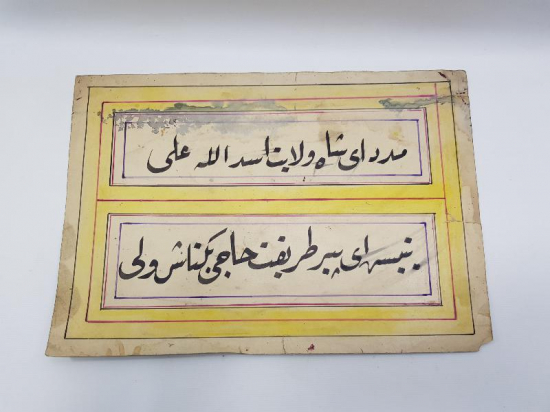 مدد ای شاه ولایت اسد الله علی
ای پیر طریقت حاجی بکتاش ولی